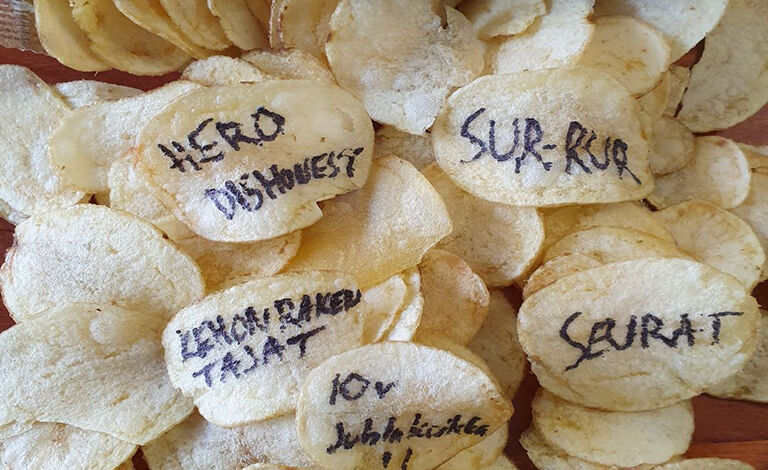 HERO
DISHONEST
SUR-RUR
LEMONRAKEU
TAJAT
SEURAT
10v